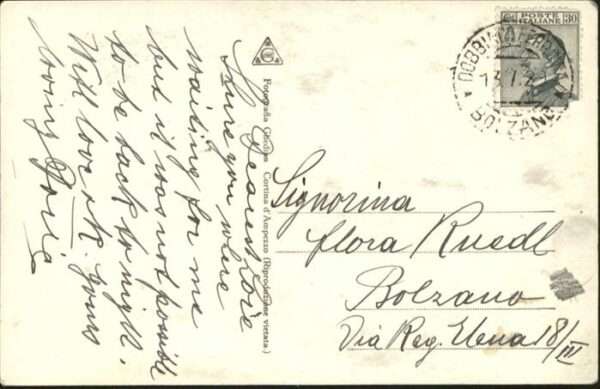 Dearest Love
Shure you where
waiting for me
but it was not possible
to be back to night.
Will love ok. yours
loving Doris
Fotografia Ghedina - Cortina d'Ampezzo (Riproduzione vietata.)
POSTE
ITALIANE
30
BOLZANO
Signorina
Flora Ruedl
Bolzano
Via Reg. Elena 18/III